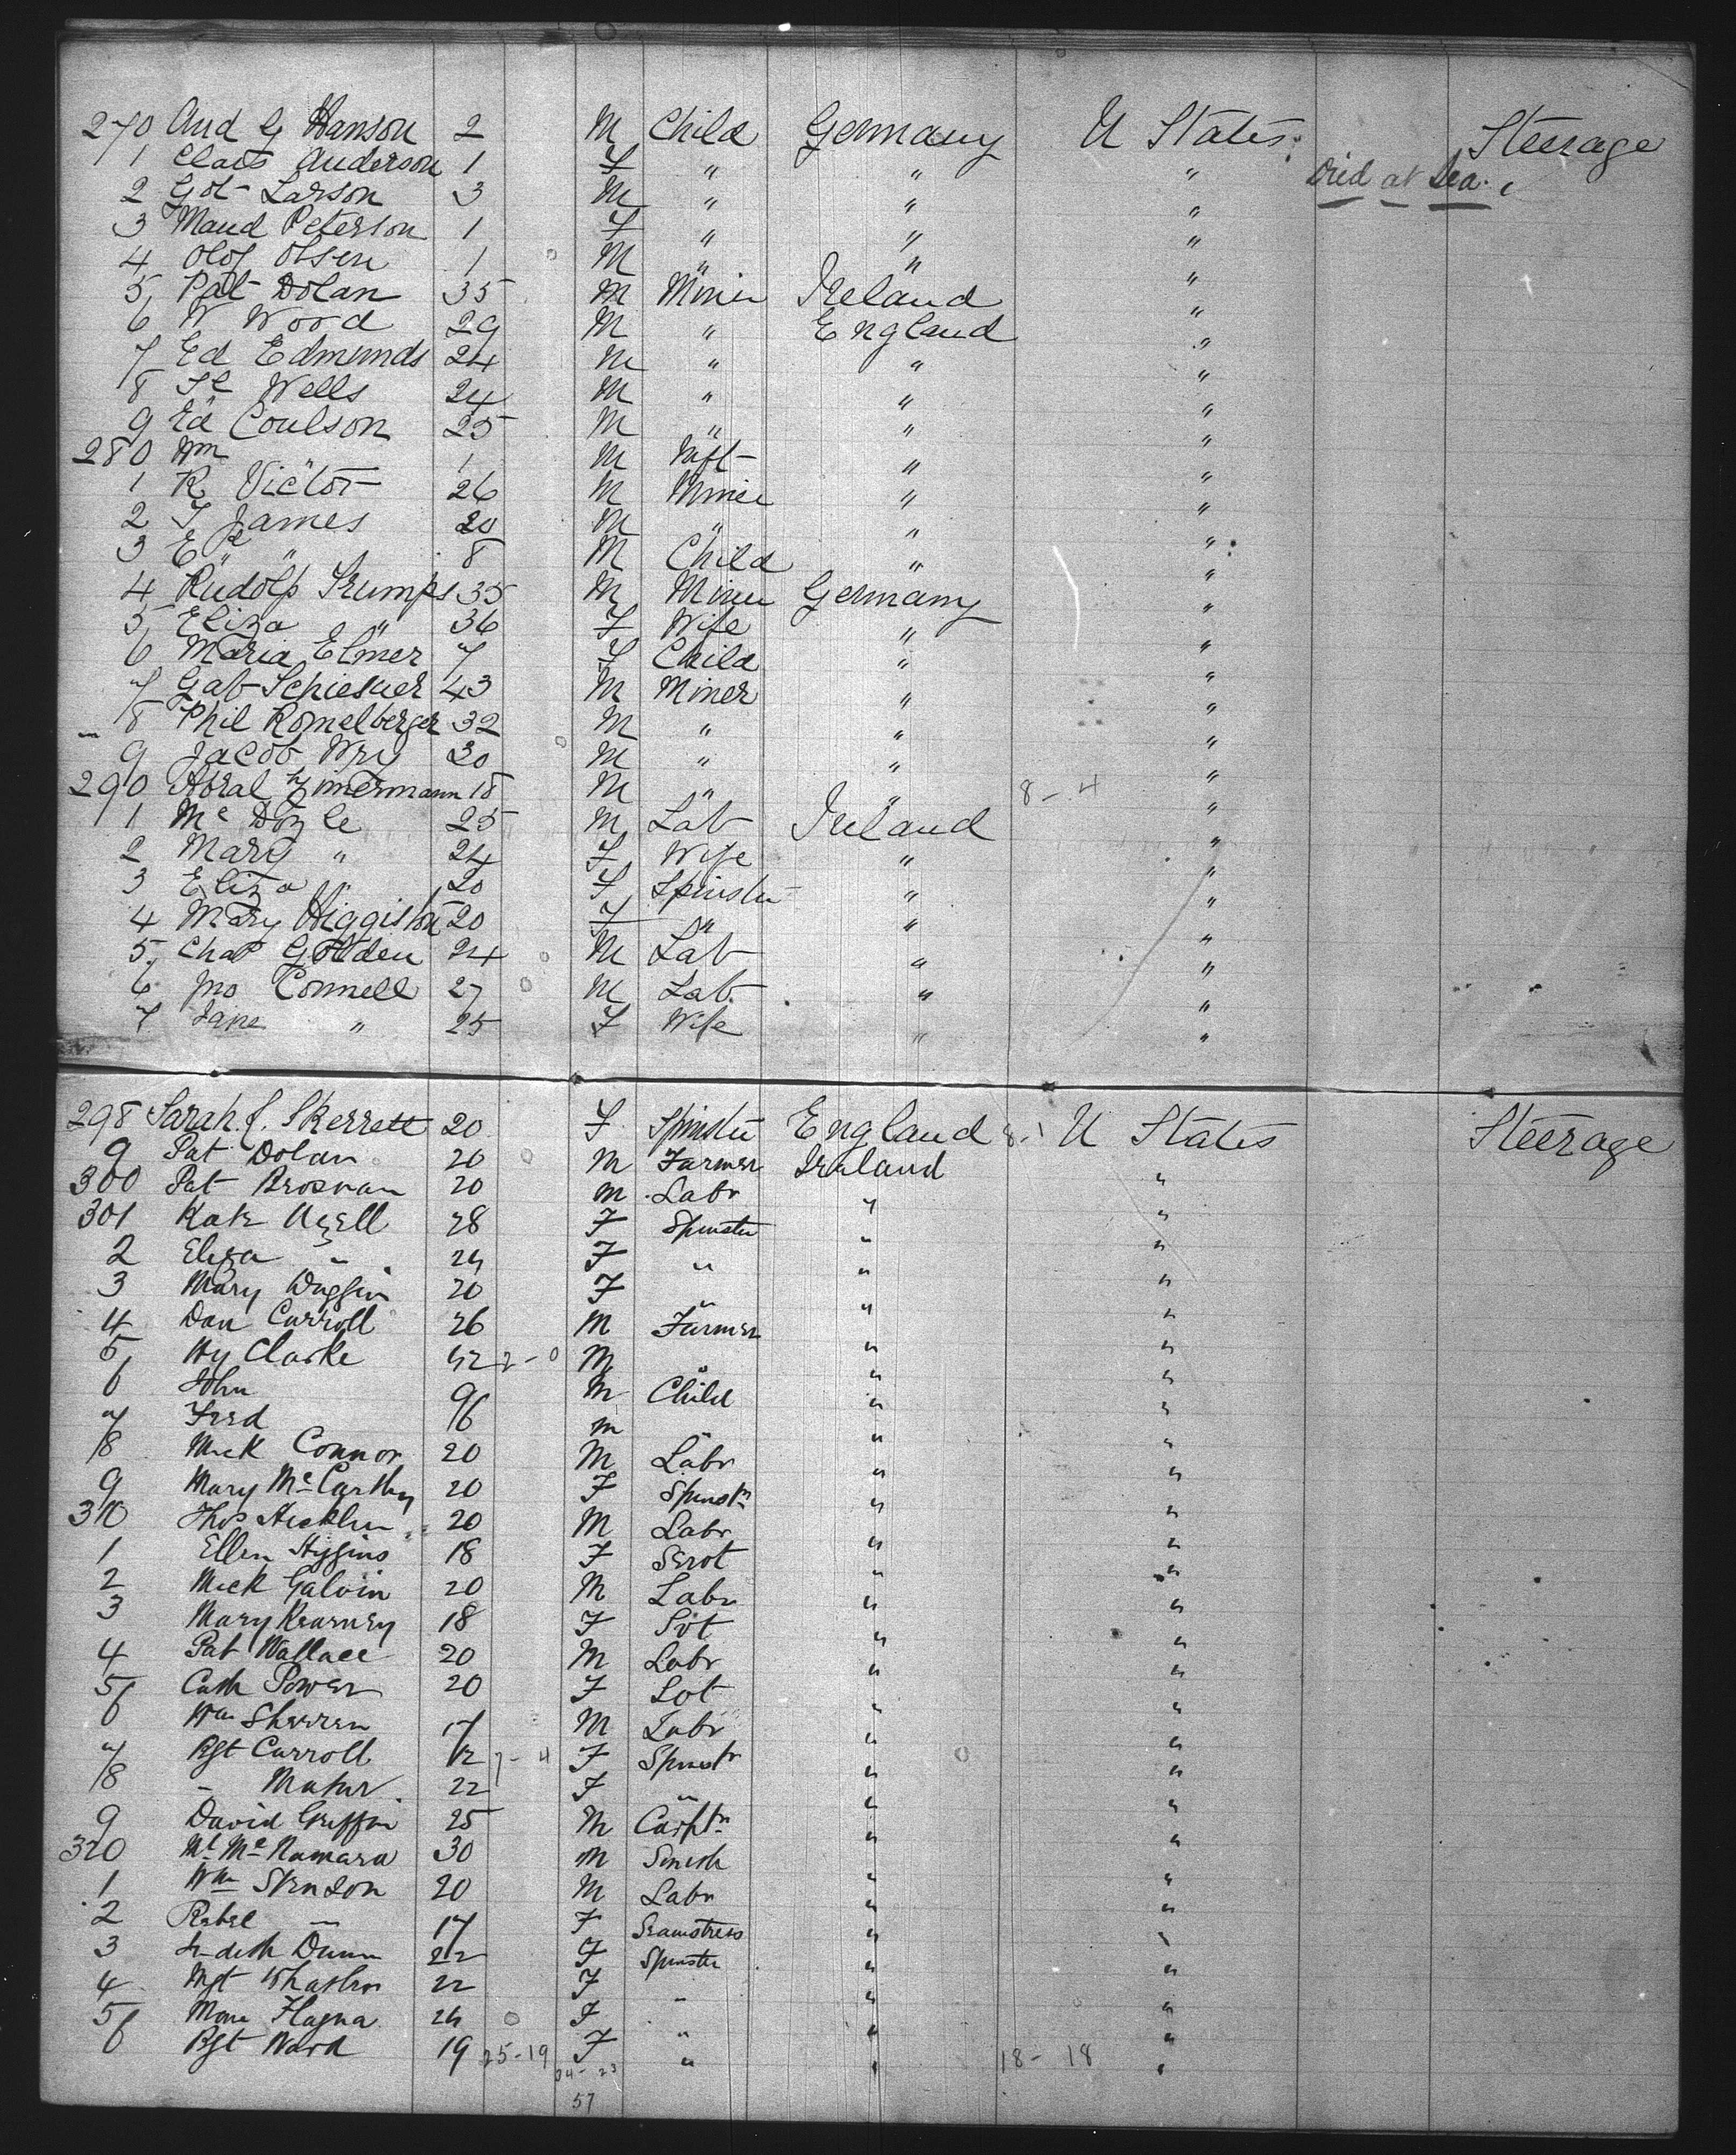 270 And G Hanson 2 M Child Germany U States Steerage
1 Clais Anderson 1 F " " " Died at Sea.
2 Got Larson 3 M " " "
3 Maud Peterson 1 F " " "
4 Olof Olsen 1 M " " "
5 Pat Dolan 35 M Miner Ireland "
6 W Wood 29 M " England "
7 Ed Edmunds 24 M " " "
8 Wells 24 M " " "
9 Ed Coulson 25 M " " "
280 Wm " 1 M Inft " "
1 R Victor 26 M Miner " "
2 T James 20 M " " "
3 E " 8 M Child " "
4 Rudolf Trumps 35 M Miner Germany "
5 Eliza " 36 F Wife " "
6 Maria Elmer 7 F Child " "
7 Gab Schiesuer 43 M Miner " "
8 Phil Romelberger 32 M " " "
9 Jacob Wry 20 M " " "
290 Zimermann 18 M " " 8-4 "
1 Mc Doyle 25 M Lab Ireland "
2 Mary " 24 F Wife " "
3 Eliza " 20 F Spinster " "
4 Mary Higgiston 20 F " " "
5 Chas Golden 24 M Lab " "
6 Jno Connell 27 M Lab. " "
7 Jane " 25 F Wife " "
298 Sarah J. Skerrett 20 F Spinster England U States Steerage
9 Pat Dolan 20 M Farmer Ireland "
300 Pat Brosnan 20 M Labr " "
301 Kate 28 F Spinster " "
2 Eliza " 24 F " " "
3 Mary Duggin 20 F " " "
4 Dan Carroll 26 M Farmer " "
5 Hy Clarke 42 2-0 M " " "
6 John 9 M Child " "
7 Fred 6 M " " "
8 Mick Connor 20 M Labr " "
9 Mary McCarthy 20 F Spinstr " "
310 Thos 20 M Labr " "
1 Ellen Higgins 18 F Servt " "
2 Mick Galvin 20 M Labr " "
3 Mary Kearney 18 F Svt " "
4 Pat Wallace 20 M Labr " "
5 Cath Power 20 F Svt " "
6 Wm Sheeren 17 M Labr " "
7 Bgt Carroll 12 7-4 F Spinstr " "
8 " Maher 22 F " " "
9 David Griffin 25 M Carptr " "
320 Ml McNamara 30 M Smith " "
1 Wm Stenson 20 M Labr " "
2 " 17 F Seamstress " "
3 Judith Dunn 22 F Spinster " "
4 Mgt 22 F " " "
5 24 F " " "
6 Bgt Ward 19 25-19 F " " 18-18 "
24-23
57